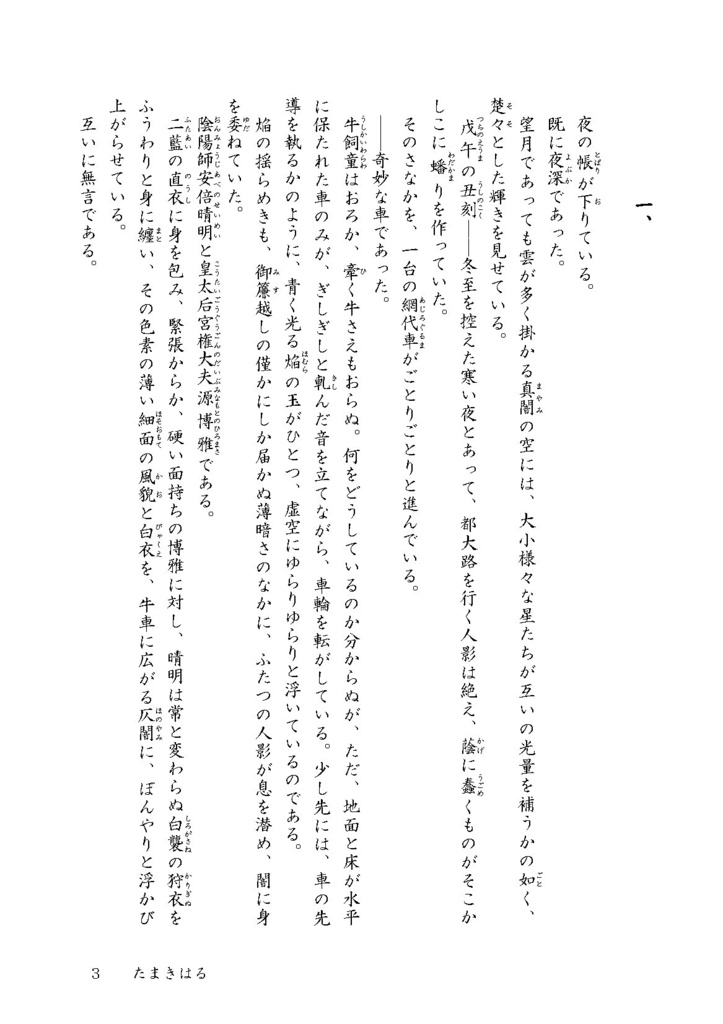 一、
夜の帳が下りている。
既に夜深であった。
望月であっても雲が多く掛かる真闇の空には、大小様々な星たちが互いの光量を補うかの如く、
楚々とした輝きを見せている。
戊午の丑刻――冬至を控えた寒い夜とあって、都大路を行く人影は絶え、蔭に蠢くものがそこか
しこに蟠りを作っていた。
そのさなかを、一台の網代車がごとりごとりと進んでいる。
――奇妙な車であった。
牛飼童はおろか、牽く牛さえもおらぬ。何をどうしているのか分からぬが、ただ、地面と床が水平
に保たれた車のみが、ぎしぎしと軋んだ音を立てながら、車輪を転がしている。少し先には、車の先
導を執るかのように、青く光る焔の玉がひとつ、虚空にゆらりゆらりと浮いているのである。
焔の揺らめきも、御簾越しの僅かにしか届かぬ薄暗さのなかに、ふたつの人影が息を潜め、闇に身
を委ねていた。
陰陽師安倍晴明と皇太后宮権大夫源博雅である。
二藍の直衣に身を包み、緊張からか、硬い面持ちの博雅に対し、晴明は常と変わらぬ白襲の狩衣を
ふうわりと身に纏い、その色素の薄い細面の風貌と白衣を、牛車に広がる仄闇に、ぼんやりと浮かび
上がらせている。
互いに無言である。
3 たまきはる